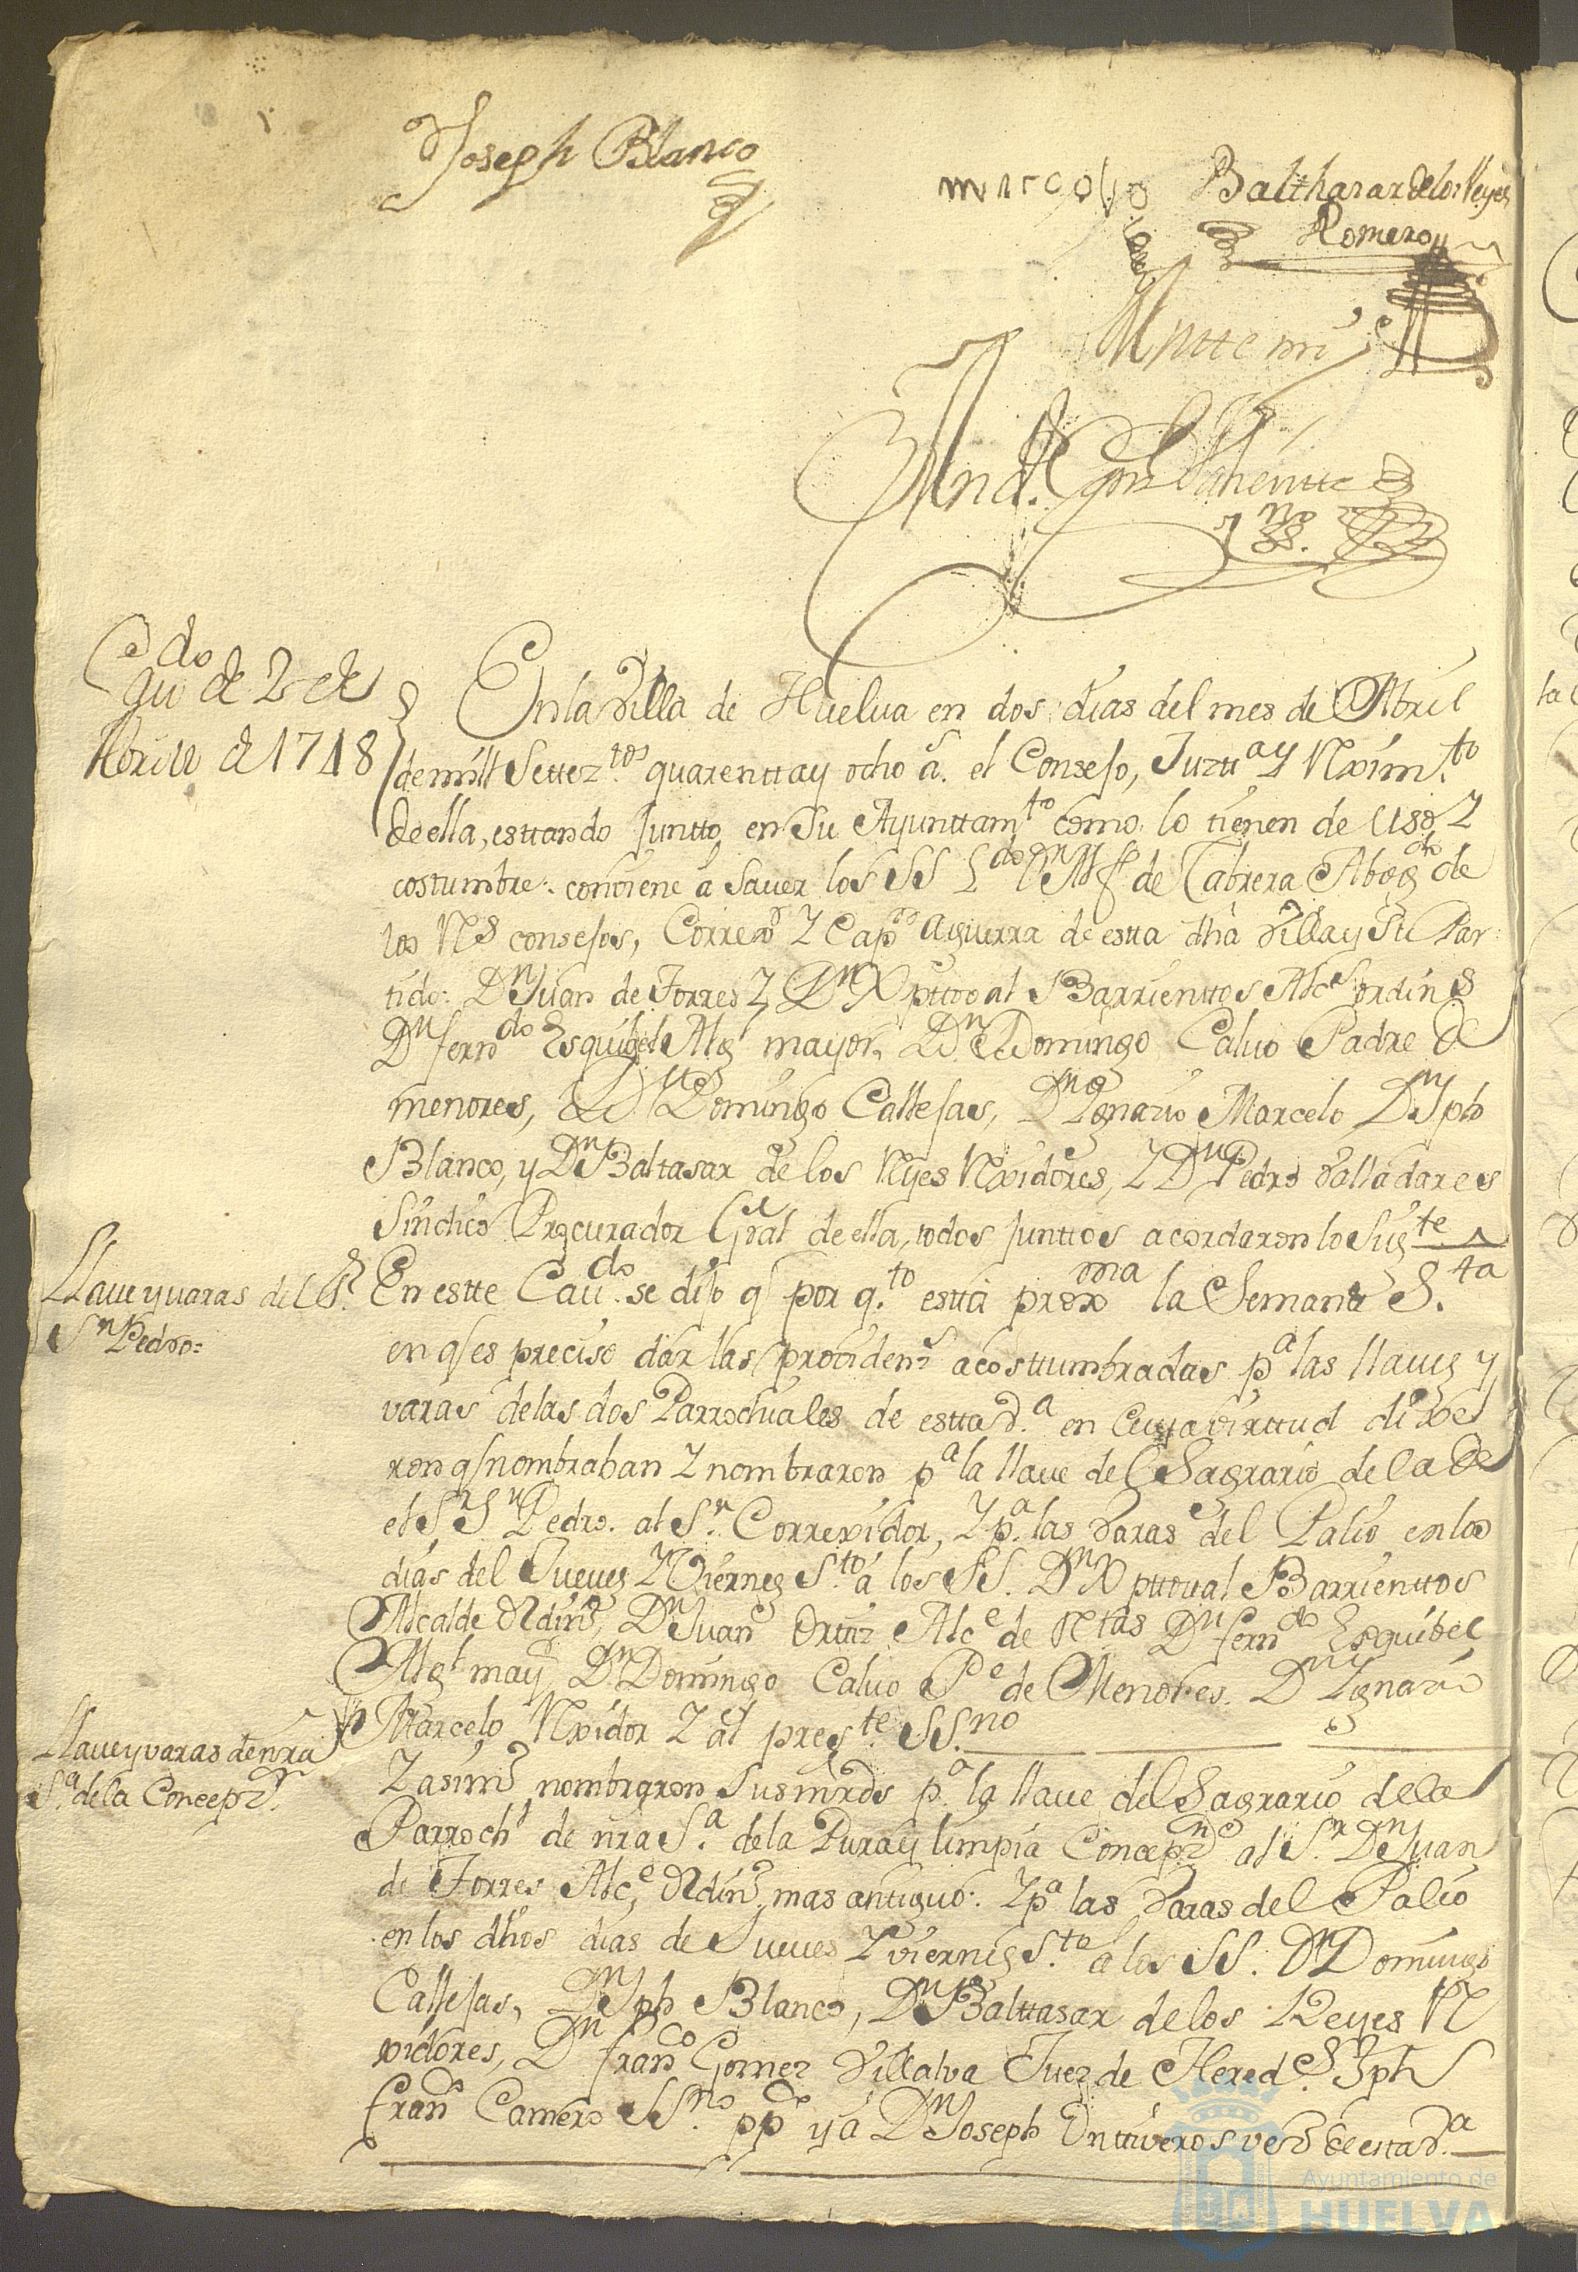 Joseph Blanco
marcelo
Balthasar de los Reyes
Romero
Antte mi
And.s Gonz Vahentte
SS.no
Cavdo de 2 de
Abrill de 1748
En la Villa de Huelva en dos dias del mes de Abril
de mill Settez.tos quarentta y ocho a.s el Consejo, Juzti.a y Rxim.to
de ella, estando juntto en su Ayunttam.to como lo tienen de uso y
costumbre: combiene á Saver los SS L.do D.n Al.f de Cabrera Abog.do de
los R.s consejos, Correx.or y Cap.n aguerra de esta dha Villa y su Par
tido: D.n Juan de Torres y D.n Xpttoval Barrienttos Alc.s ordin.s
D.n fern.do Esquibel Alg.l mayor, D.n Domingo Calvo Padre de
menores, D.n Domingo Callejas, D.n Ygnacio Marcelo, D.n Jph
Blanco, y D.n Baltasar de los Reyes Rxidores, y D.n Pedro Valladares
Sindico Procurador Gral de ella, todos junttos acordaron lo Sig.te
Llave y varas del S.r
S.n Pedro=
En estte Cav.do se dijo q por q.to estta prox.ma la Semana S.ta
en q es preciso dar las providen.s acosttumbradas p.a las llaves y
varas de las dos Parrochiales de estta V.a en cuya virttud dixe
ron q nombraban y nombraron p.a la llave del Sagrario de la de
el S.r S.n Pedro. al S.r Correxidor, y p.a las Varas del Palio en los
dias del Jueves y Viernes S.to á los SS. D.n Xpttoval Barrienttos
Alcalde Ordin.o, D.n Juan Ortiz Alc.e de R.tas D.n fern.do Esquibel
Alg.l may.r D.n Domingo Calvo P.e de Menores. D.n Ygnacio
Marcelo Rxidor y al pres.te SS.no
Llave y varas de nra
S.a de la Concepz.n
Y asim.o nombraron sus mrds p.a la llave del Sagrario de la
Parroch.l de nra S.a de la Pura y limpia Concepz.n al S.r D.n Juan
de Torres Alc.e Ordin.o mas antiguo: y p.a las Varas del Palio
en los dhos dias de Jueves y viernes S.to a los SS. D.n Domingo
Callejas, D.n Jph Blanco, D.n Balttasar de los Reyes R
xidores, D.n fran.co Gomez Villalva Juez de Hered.s Jph
fran.co Camero SS.no pp.co y á D.n Joseph Onttiveros vez.o de esta V.a
Ayuntamiento de
HUELVA